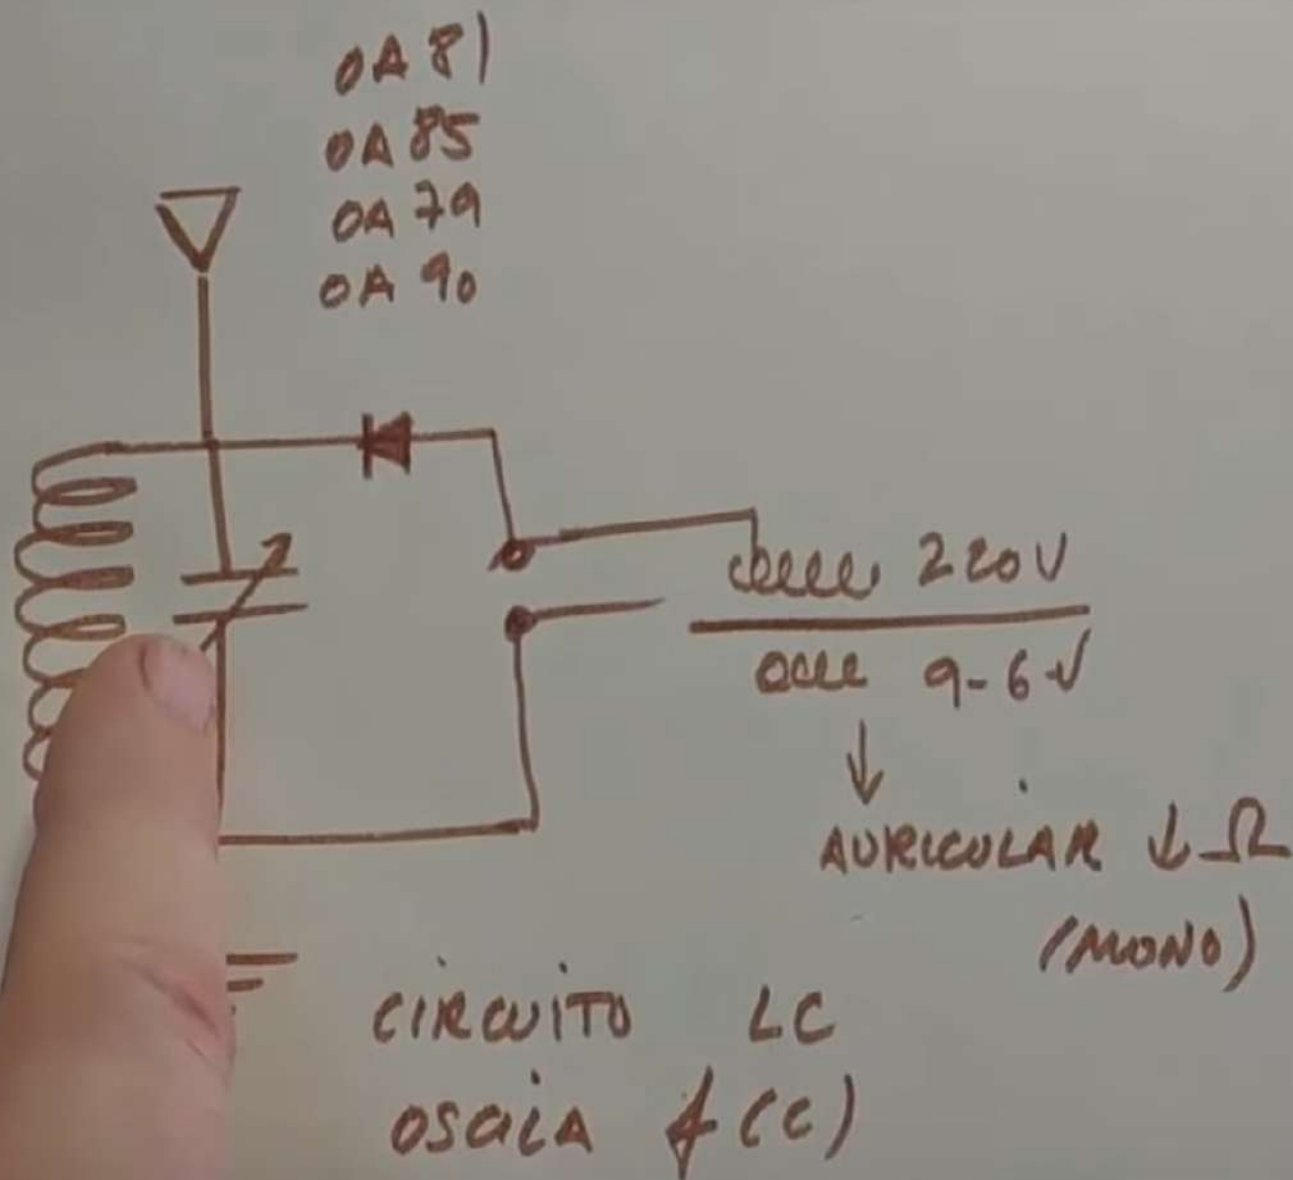 OA 81
OA 85
OA 79
OA 90
220V
9-6V
AURICULAR ↓ Ω
(MONO)
CIRCUITO LC
OSCILA f(C)